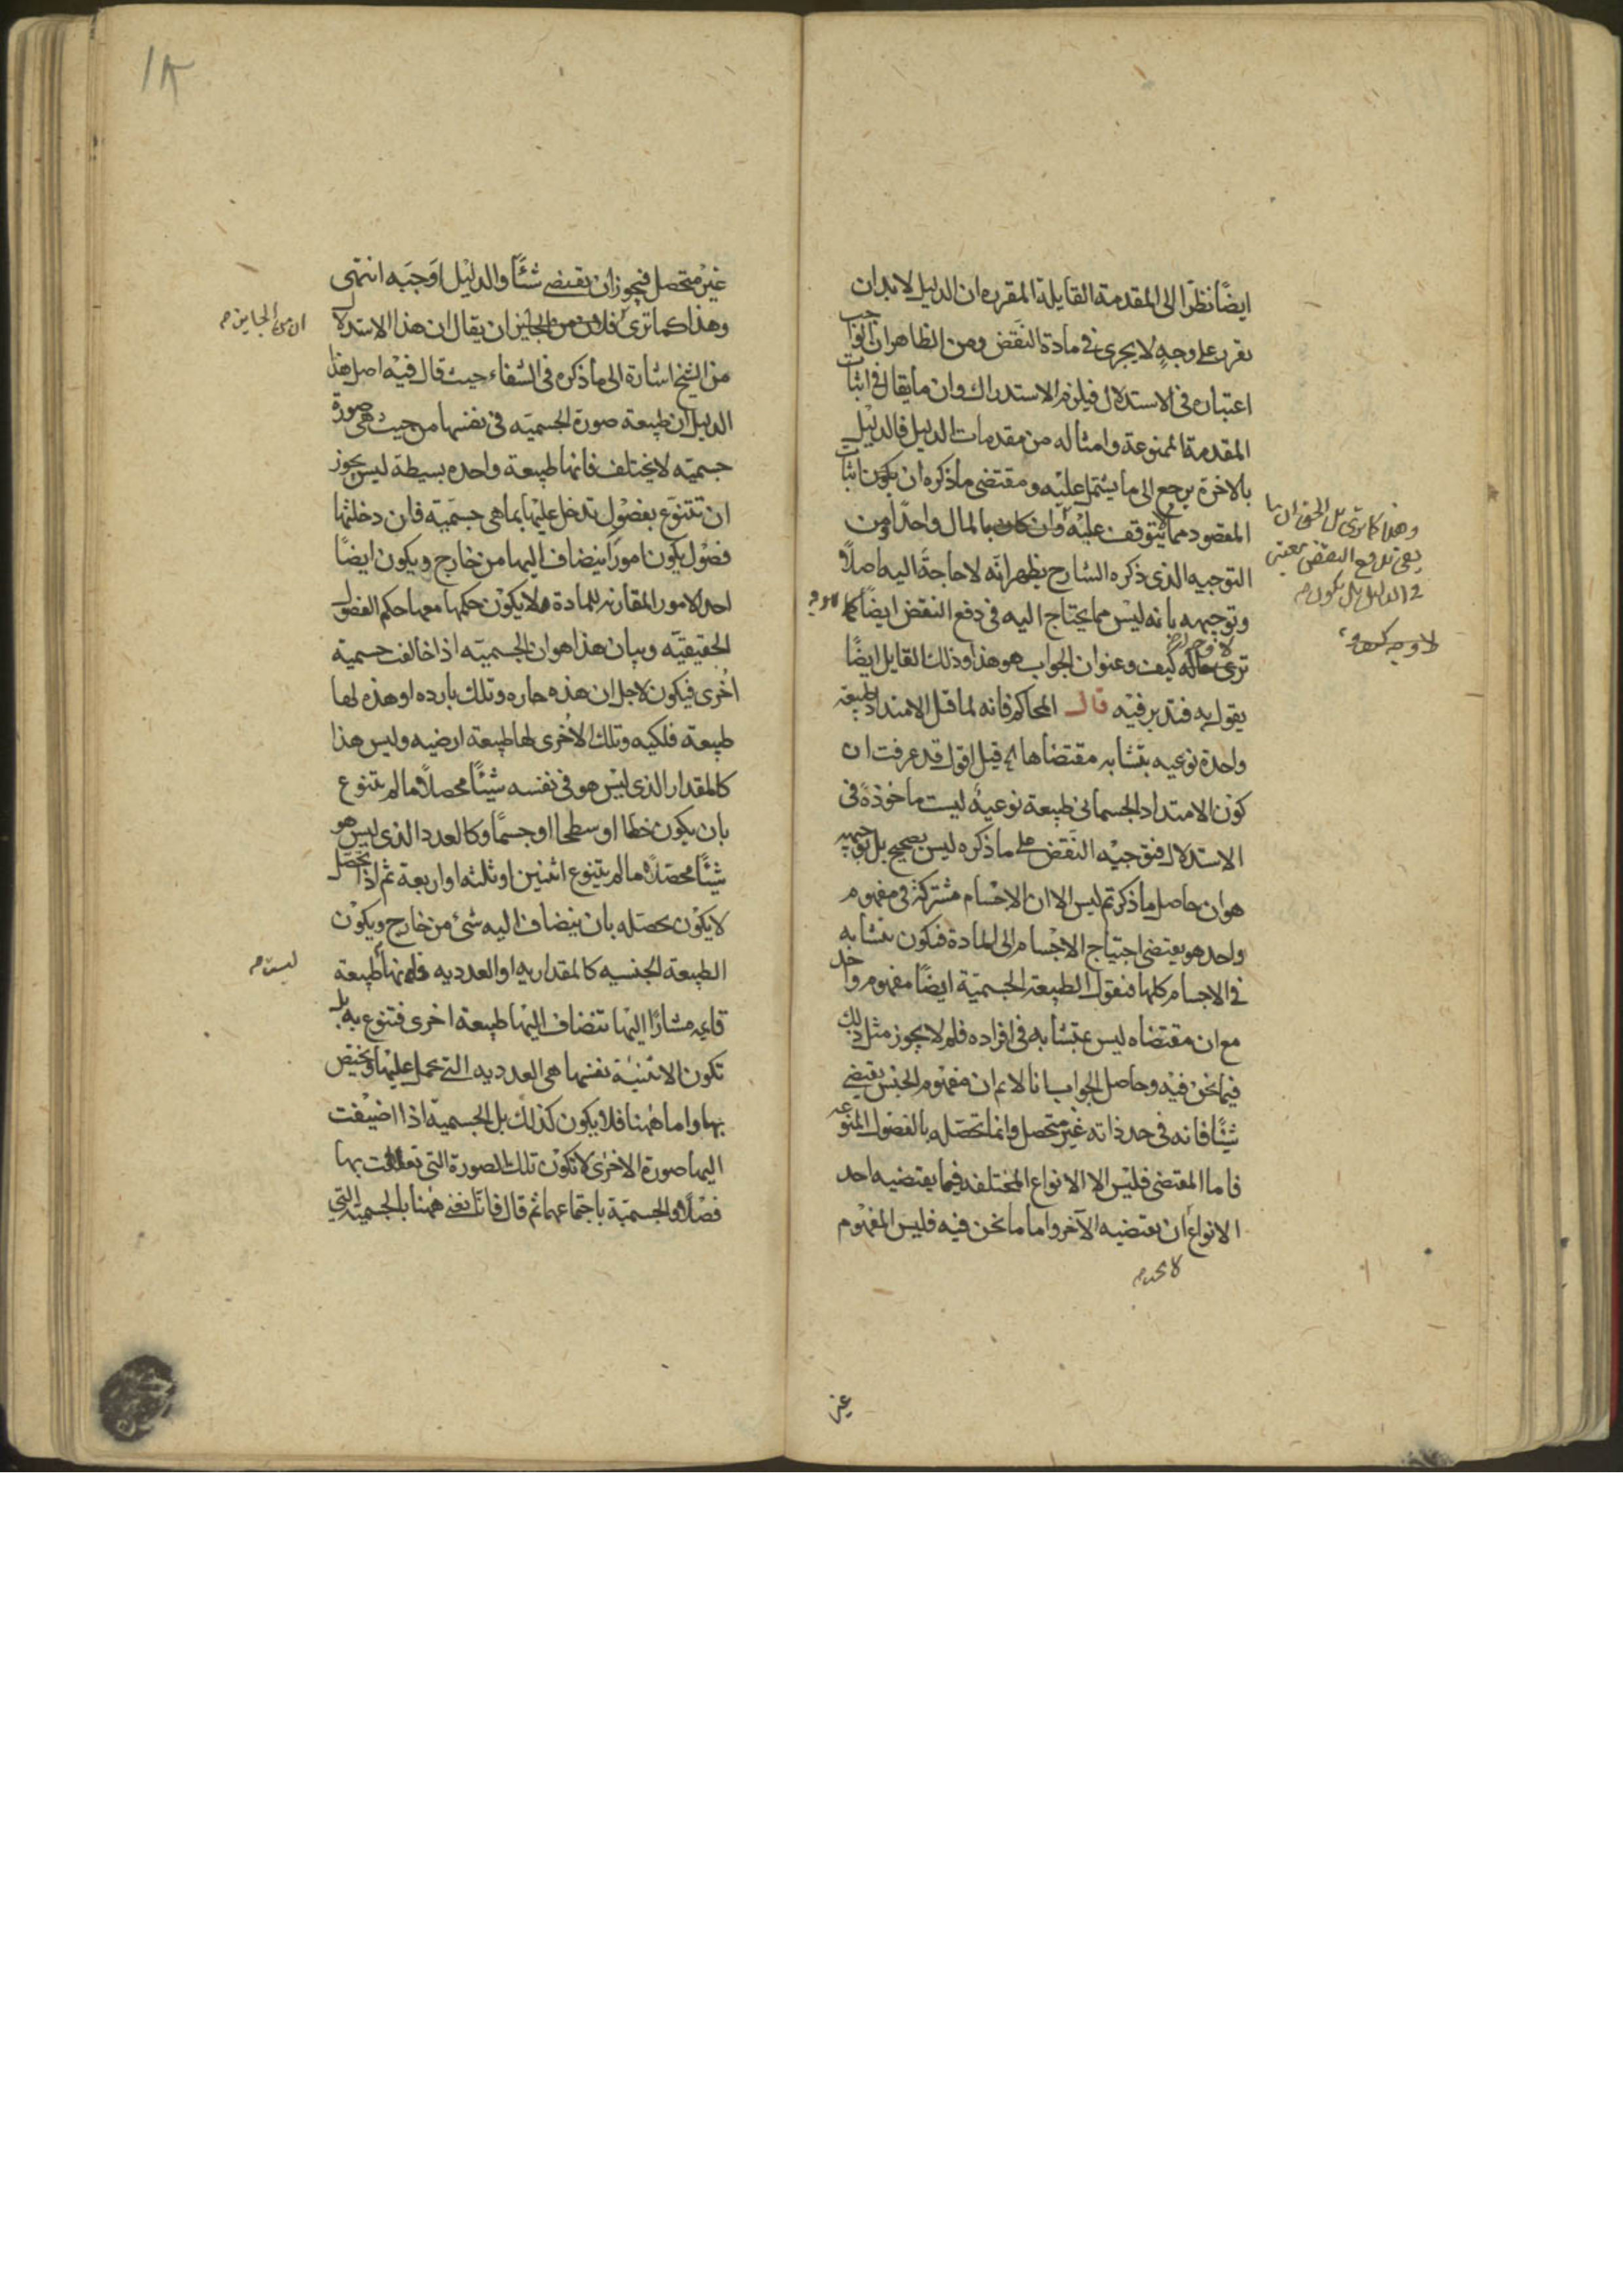 ايضًا نظرًا الى المقدمة القايلة المقرره ان الدليل لابد ان
يقرر على وجهٍ لا يجرى فى مادة النقض ومن الظاهر ان الواجب
اعتباره فى الاستدلال فيلزم الاستدراك وان ما يقال فى اثبات
المقدمة الممنوعة وامثاله من مقدمات الدليل فالدليل
بالاخرة يرجع الى ما يشتمل عليه ومقتضى ما ذكره ان يكون اثبات
المقصود مما يتوقف عليه وان كان بالمال واحدًا ومن
التوجيه الذى ذكره الشارح يظهر انه لا حاجة اليه اصلًا
وتوجيهه بانه ليس مما يحتاج اليه فى دفع النقض ايضًا كما
ترى كيف وعنوان الجواب هو هذا وذلك القايل ايضًا
يقول به فتدبر فيه قال المحاكم فانه لما قيل الامتداد طبيعة
واحدة نوعيه يتشابه مقتضاها الخ قيل اقول قد عرفت ان
كون الامتداد الجسمانى طبيعة نوعيةً ليست ماخوذةً فى
الاستدلال فتوجيه النقض على ما ذكره ليس بصحيح بل توجيهه
هو ان حاصل ما ذكرتم ليس الا ان الاجسام مشتركة فى مفهوم
واحد هو يقتضى احتياج الاجسام الى المادة فيكون يتشابه
فى الاجسام كلها فنقول الطبيعة الجسمية ايضًا مفهوم واحد
مع ان مقتضاه ليس بمتشابه فى افراده فلم لا يجوز مثل ذلك
فيما نحن فيه وحاصل الجواب انا لا نم ان مفهوم الجنس يقتضى
شيئًا فانه فى حد ذاته غير متحصل وانما تحصله بالفصول المنوعه
فاما المقتضى فليس الا الانواع المختلفه فيما يقتضيه احد
الانواع ان يقتضيه الآخر واما ما نحن فيه فليس المفهوم
لا يجب م
غير
وهذا كما ترى بل الحق ان
فى الدليل بل يكون م
١٨
غير متحصل فيجوز ان يقتضى شيئًا والدليل اوجبه انتهى
وهذا كما ترى ان يقال ان هذا الاستدلال
من الشيخ اشارة الى ما ذكره فى الشفاء حيث قال فيه اصل هذا
الدليل ان طبيعة صورة الجسميه فى نفسها من حيث هى صورة
جسميه لا يختلف فانها طبيعة واحده بسيطة ليس يجوز
ان تتنوع بفصول تدخل عليها بما هى جسمية فان دخلتها
فصول يكون امورًا ينضاف اليها من خارج ويكون ايضًا
احد الامور المقارنه للمادة ولا يكون حكمها معها حكم الفصول
الحقيقيه وبيان هذا هو ان الجسميه اذا خالفت جسمية
اُخرى فيكون لاجل ان هذه حاره وتلك بارده او هذه لها
طبيعة فلكيه وتلك الاُخرى لها طبيعة ارضيه وليس هذا
كالمقدار الذى ليس هو فى نفسه شيئًا محصلًا ما لم يتنوع
بان يكون خطا او سطحا او جسمًا وكالعدد الذى ليس هو
شيئًا محصّلًا ما لم يتنوع اثنين او ثلثه او اربعة ثم اذا تحصّل
لا يكون تحصله بان ينضاف اليه شئ من خارج ويكون
الطبيعة الجنسيه كالمقداريه او العدديه طبيعة
قايمه مشارًا اليها تنضاف اليها طبيعة اخرى فتنوع به بل
تكون الاثنينية نفسها هى العدديه التى تحمل عليها وتختص
بها واما ههنا فلا يكون كذلك بل الجسمية اذا اضيفت
اليها صورة الاخرى لا تكون تلك الصورة التى بها
فصلًا والجسمية باجتماعهما ثم قال فانا نعنى ههنا بالجسمية التى
ان من الجايز م
ليست م